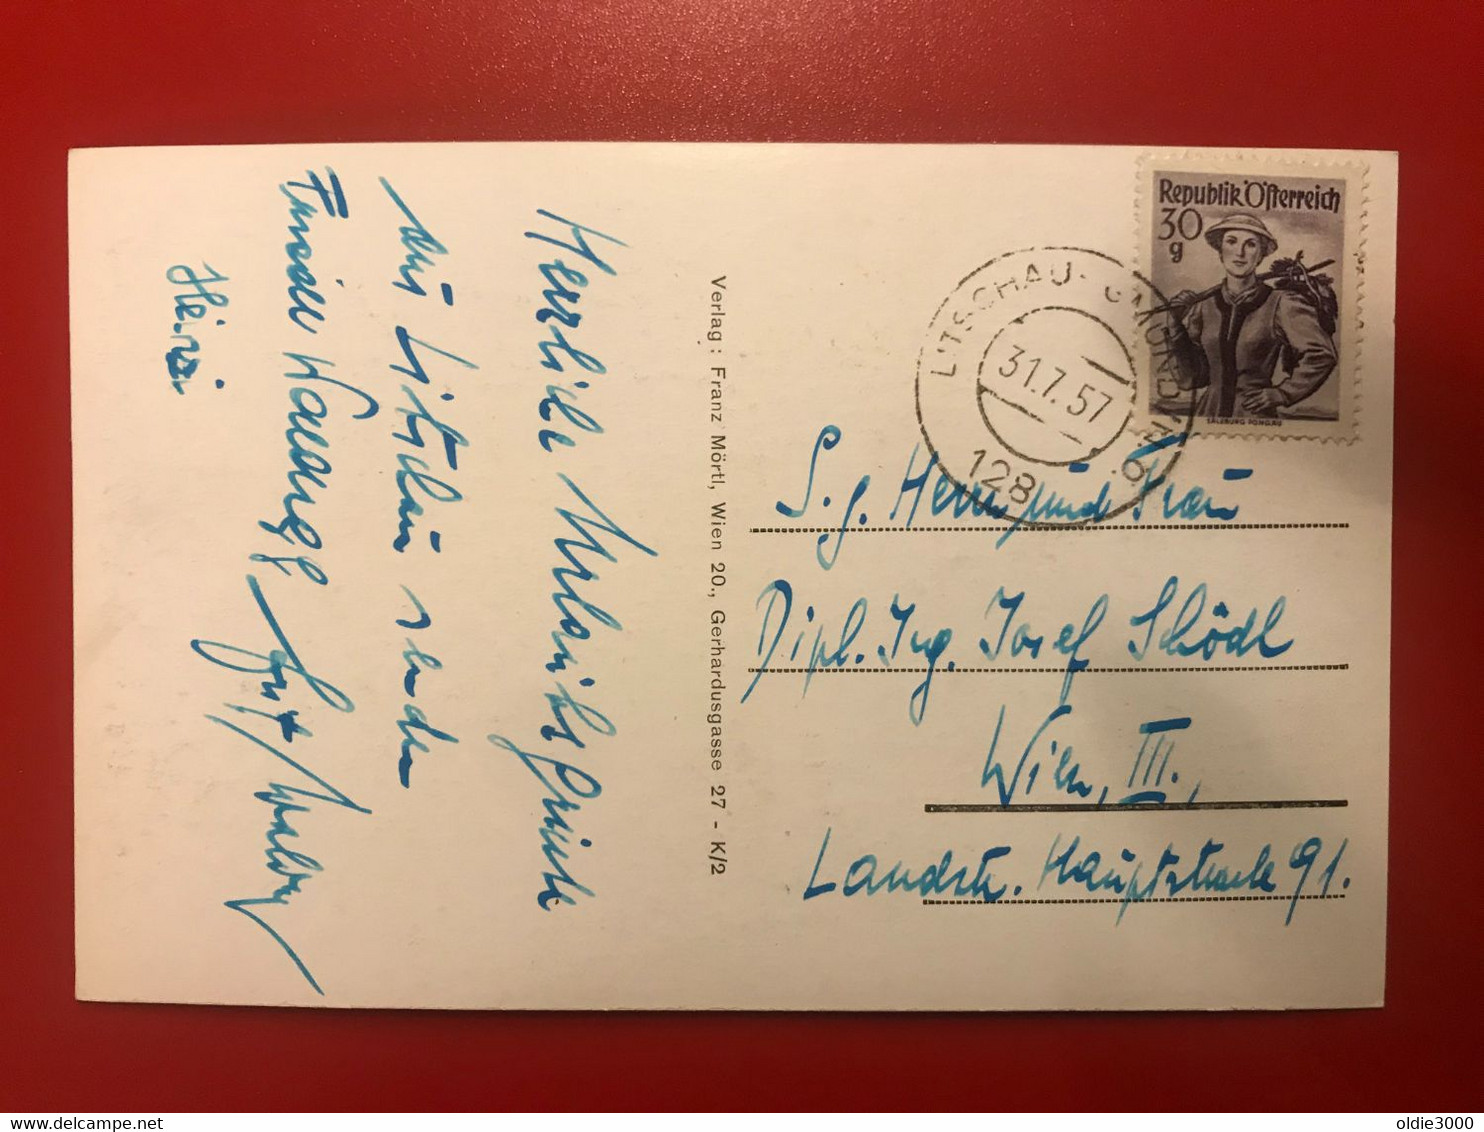 Herzliche Urlaubsgrüße
aus Litschau senden
Familie
Heinzi
Verlag: Franz Mörtl, Wien 20., Gerhardusgasse 27 - K/2
Republik Österreich
30
g
SALZBURG PONGAU
LITSCHAU- GMÜND N.Ö.
31.7.57
128
S.g. Herrn und Frau
Dipl. Ing. Josef Schödl
Wien, III.,
Landstr. Hauptstraße 91.
delcampe.net
oldie3000